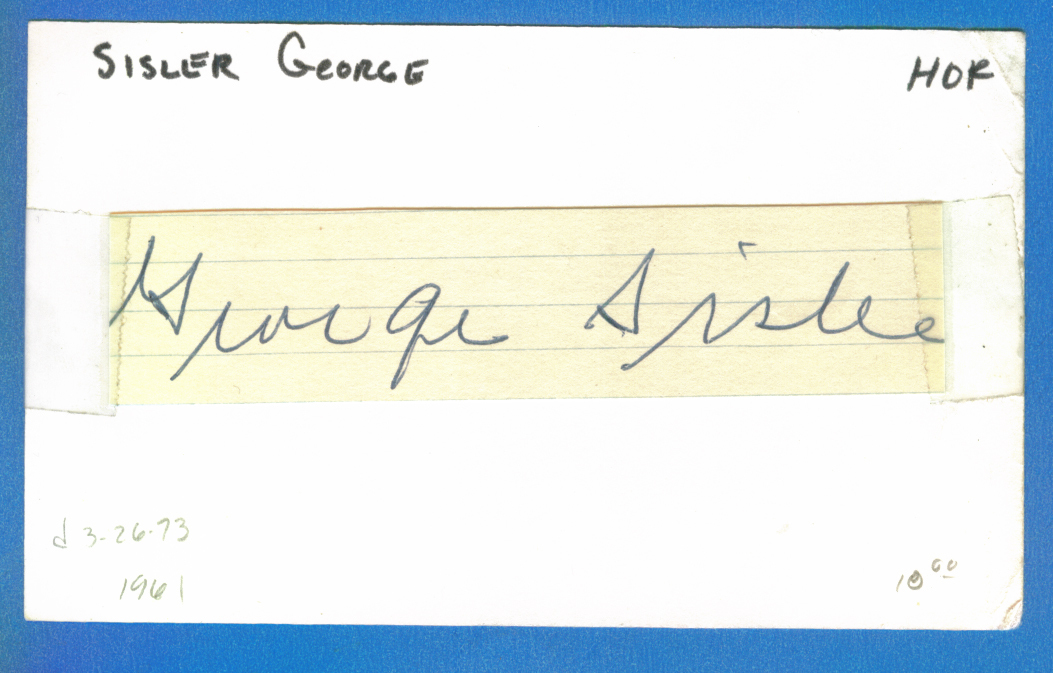 SISLER GEORGE HOF
George Sisler
d 3-26-73
1961
10 00